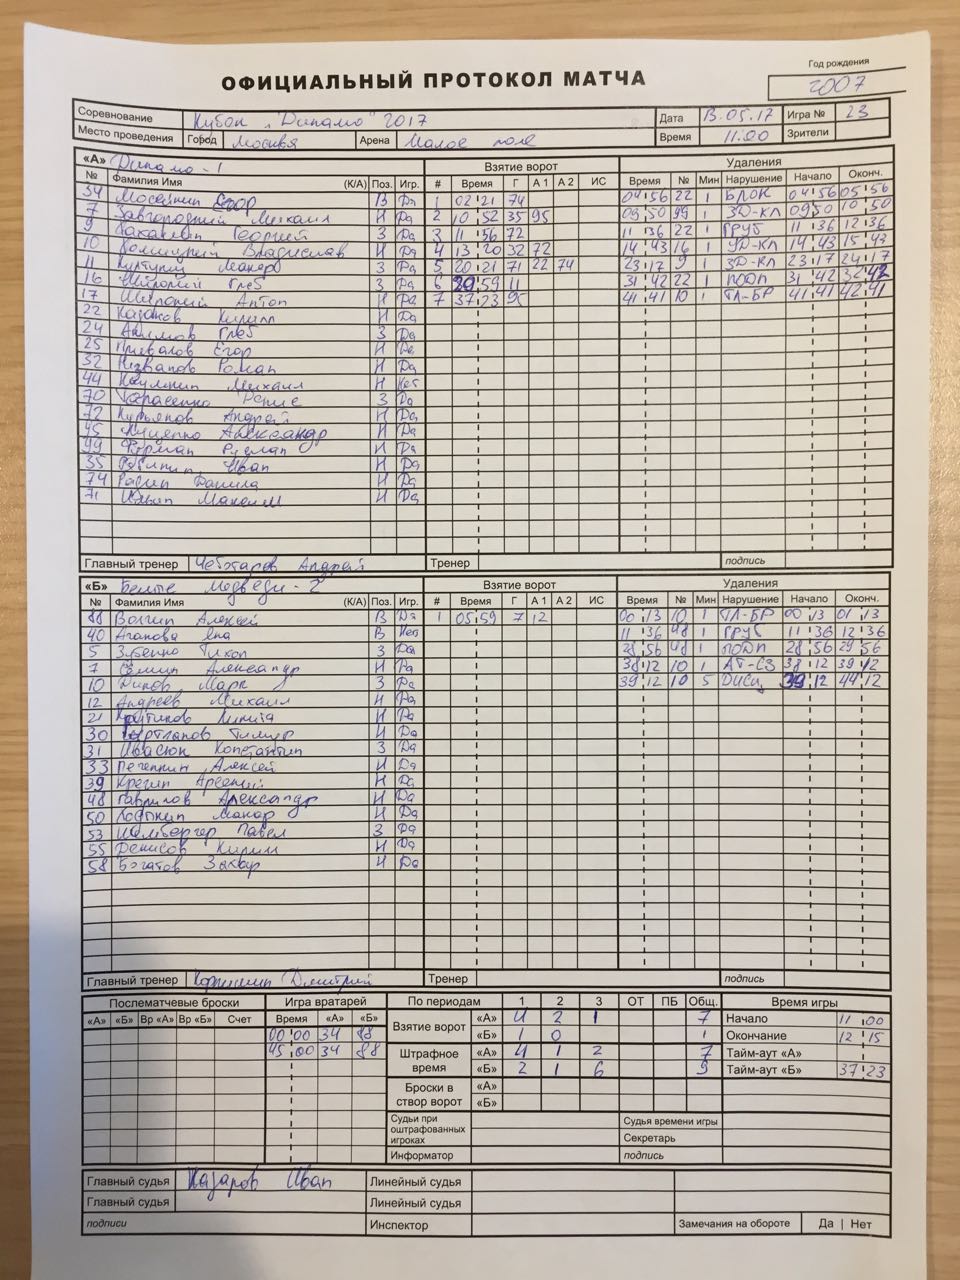 Год рождения
ОФИЦИАЛЬНЫЙ ПРОТОКОЛ МАТЧА 2007
Соревнование Кубок "Динамо" 2017 Дата 13.05.17 Игра № 23
Место проведения Город Москва Арена Малое поле Время 11.00 Зрители
«А» Динамо-1 Взятие ворот Удаления
№ Фамилия Имя (К/А) Поз. Игр. # Время Г А 1 А 2 ИС Время № Мин Нарушение Начало Оконч.
34 Егор В Да 1 02 21 74 04 56 22 1 БЛОК 04 56 05 56
7 Завгородний Михаил Н Да 2 10 52 35 95 09 50 99 1 ЗД-КЛ 09 50 10 50
9 Георгий З Да 3 11 56 72 11 36 22 1 ГРУБ 11 36 12 36
10 Владислав Н Да 4 13 20 32 72 14 43 16 1 УД-КЛ 14 43 15 43
11 Макар З Да 5 20 21 71 22 74 23 17 9 1 ЗД-КЛ 23 17 24 17
16 Широкий Глеб З Да 6 29 59 11 31 42 22 1 ПОДН 31 42 32 42
17 Широкий Антон Н Да 7 37 23 95 41 41 10 1 ТЛ-БР 41 41 42 41
22 Казаков Кирилл Н Да
24 Акимов Глеб З Да
25 Привалов Егор Н Да
32 Незванов Роман Н Да
44 Наумкин Михаил Н Нет
70 Тарасенко Денис З Да
72 Курьянов Андрей Н Да
95 Куценко Александр Н Да
99 Фурман Руслан Н Да
35 Иван Н Да
74 Радин Данила Н Да
71 Ильин Максим Н Да
Главный тренер Чеботарев Андрей Тренер подпись
«Б» Белые Медведи-2 Взятие ворот Удаления
№ Фамилия Имя (К/А) Поз. Игр. # Время Г А 1 А 2 ИС Время № Мин Нарушение Начало Оконч.
88 Волгин Алексей В Да 1 05 59 7 12 00 13 10 1 ТЛ-БР 00 13 01 13
40 Агапова Яна В Нет 11 36 48 1 ГРУБ 11 36 12 36
5 Зубенко Тихон З Да 28 56 48 1 ПОДН 28 56 29 56
7 Сёмин Александр Н Да 38 12 10 1 АТ-СЗ 38 12 39 12
10 Марк З Да 39 12 10 5 ДИСЦ 39 12 44 12
12 Андреев Михаил Н Да
21 Крутиков Никита Н Да
30 Тимур Н Да
31 Ивасюк Константин З Да
33 Печенкин Алексей Н Да
39 Крегин Арсений Н Да
48 Гаврилов Александр Н Да
50 Макар Н Да
53 Шембергер Павел З Да
55 Денисов Кирилл Н Да
58 Богатов Захар Н Да
Главный тренер Дмитрий Тренер подпись
Послематчевые броски Игра вратарей По периодам 1 2 3 ОТ ПБ Общ. Время игры
«А» «Б» Вр «А» Вр «Б» Счет Время «А» «Б» Взятие ворот «А» 4 2 1 7 Начало 11 00
00 00 34 88 «Б» 1 0 1 Окончание 12 15
45 00 34 88 Штрафное время «А» 4 1 2 7 Тайм-аут «А»
«Б» 2 1 6 9 Тайм-аут «Б» 37 23
Броски в створ ворот «А»
«Б»
Судьи при оштрафованных игроках Судья времени игры
Секретарь
Информатор подпись
Главный судья Назаров Иван Линейный судья
Главный судья Линейный судья
подписи Инспектор Замечания на обороте Да | Нет